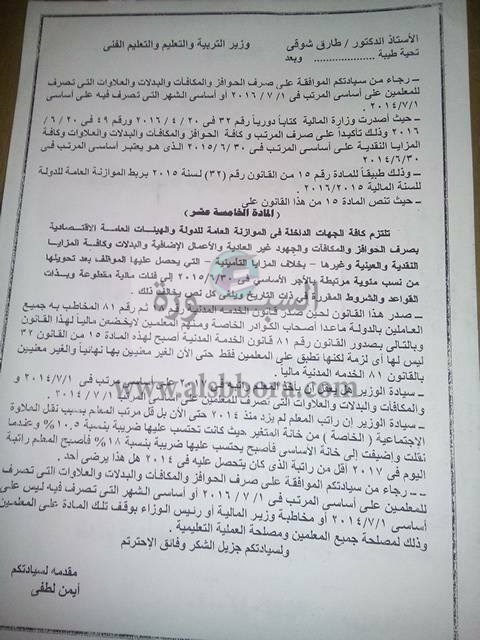 الأستاذ الدكتور / طارق شوقى     وزير التربية والتعليم والتعليم الفنى
تحية طيبة .................... وبعد
ــ رجاء من سيادتكم الموافقة على صرف الحوافز والمكافآت والبدلات والعلاوات التى تصرف
للمعلمين على أساسى المرتب فى ٢٠١٦/٧/١ أو أساسى الشهر التى تصرف فيه على أساسى
٢٠١٤/٧/١ .
ــ حيث أصدرت وزارة المالية كتاباً دورياً رقم ٣٢ فى ٢٠ / ٤ / ٢٠١٦ ورقم ٤٩ فى ٢٠ / ٦ /
٢٠١٦ وذلك تأكيداً على صرف المرتب وكافة الحوافز والمكافآت والبدلات والعلاوات وكافة
المزايا النقدية على أساسى المرتب فى ٢٠١٥/٦/٣٠ الذى هو يعتبر أساسى فى
٢٠١٤/٦/٣٠ .
ــ وذلك طبقاً للمادة رقم ١٥ من القانون رقم (٣٢) لسنة ٢٠١٥ بربط الموازنة العامة للدولة
للسنة المالية ٢٠١٦/٢٠١٥ .
ــ حيث تنص المادة ١٥ من هذا القانون على
(المادة الخامسة عشر)
تلتزم كافة الجهات الداخلة فى الموازنة العامة للدولة والهيئات العامة الاقتصادية
بصرف الحوافز والمكافآت والجهود غير العادية والأعمال الإضافية والبدلات وكافة المزايا
النقدية والعينية وغيرها – بخلاف المزايا التأمينية – التى يحصل عليها الموظف بعد تحويلها
من نسب مئوية مرتبطة بالأجر الأساسى فى ٢٠١٥/٦/٣٠ إلى فئات مالية مقطوعة وبذات
القواعد والشروط المقررة فى ذات التاريخ ويلغى كل نص يخالف ذلك .
ــ صدر هذا القانون لحين صدر قانون الخدمة المدنية رقم ٨١ المخاطب به جميع
العاملين بالدولة ماعدا أصحاب الكوادر الخاصة ومنهم المعلمين لايخضعن مالياً لهذا القانون
وبالتالى بصدور القانون رقم ٨١ قانون الخدمة المدنية أصبح لهذه المادة ١٥ من القانون ٣٢
ليس لها أى لزمة لكنها تطبق على المعلمين فقط حتى الأن الغير معنيين بها نهائياً والغير معنيين
بالقانون ٨١ الخدمه المدنية مالياً .
ــ سيادة الوزير هل يعقل إن يأخذ المعلم أساسى مرتب فى ٢٠١٤/٧/١ و
والمكافآت والبدلات والعلاوات التى تصرف للمعلمين على أساسى
ــ سيادة الوزير إن راتب المعلم لم يزد منذ ٢٠١٤ حتى الأن بل قل مرتب المعلم بسبب نقل العلاوة
الاجتماعية ( الخاصة ) من خانة المتغير حيث كانت تحتسب عليها ضريبة بنسبة ١٠.٥% وعندما
نقلت وإضيفت إلى خانة الأساسى فأصبح يحتسب عليها ضريبة بنسبة ١٨% فأصبح المعلم راتبة
اليوم فى ٢٠١٧ أقل من راتبة الذى كان يتحصل عليه فى ٢٠١٤ هل هذا يرضى أحد .
ــ رجاء من سيادتكم الموافقة على صرف الحوافز والمكافآت والبدلات والعلاوات التى تصرف
للمعلمين على أساسى المرتب فى ٢٠١٦/٧/١ أو أساسى الشهر التى تصرف فيه ليس على
أساسى ٢٠١٤/٧/١ أو مخاطبة وزير المالية أو رئيس الوزاء بوقف تلك المادة على المعلمين
وذلك لمصلحة جميع المعلمين ومصلحة العملية التعليمية .
ولسيادتكم جزيل الشكر وفائق الإحترتم
مقدمه لسيادتكم
أيمن لطفى
السبورة
www.alsbbora.com